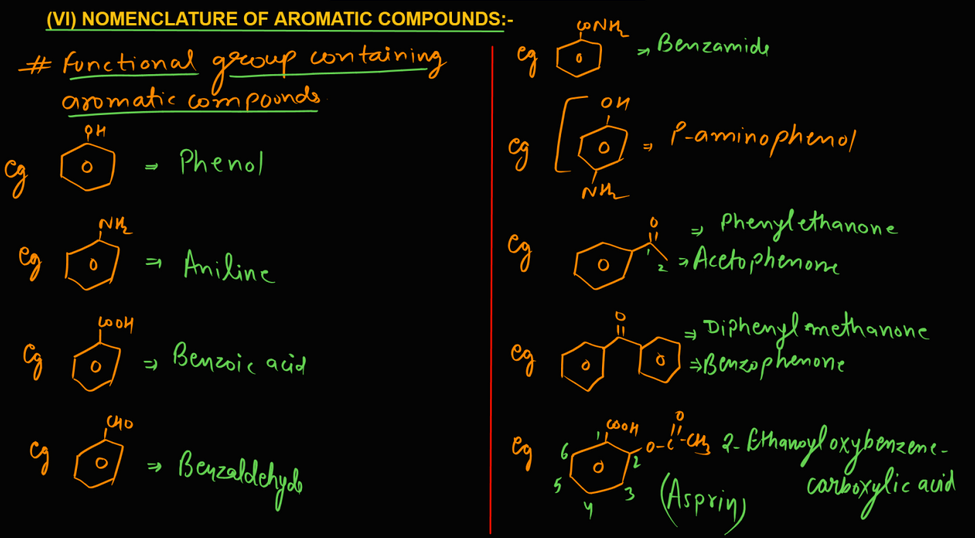 (VI) NOMENCLATURE OF AROMATIC COMPOUNDS:-
# Functional group containing
aromatic compounds
OH
Eg ⇒ Phenol
NH2
Eg ⇒ Aniline
COOH
Eg ⇒ Benzoic acid
CHO
Eg ⇒ Benzaldehyde
CONH2
Eg ⇒ Benzamide
OH
Eg ⇒ P-aminophenol
NH2
O
Eg 1 2 ⇒ Phenylethanone
⇒ Acetophenone
O
Eg ⇒ Diphenyl methanone
⇒ Benzophenone
O
COOH
Eg 1 2 3 4 5 6 O-C-CH3 2-Ethanoyloxybenzene-
carboxylic acid
(Asprin)